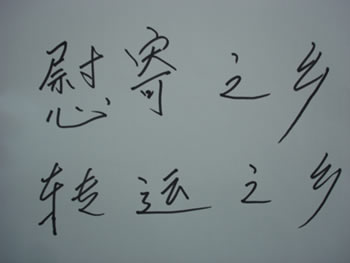 慰寄之乡
转运之乡